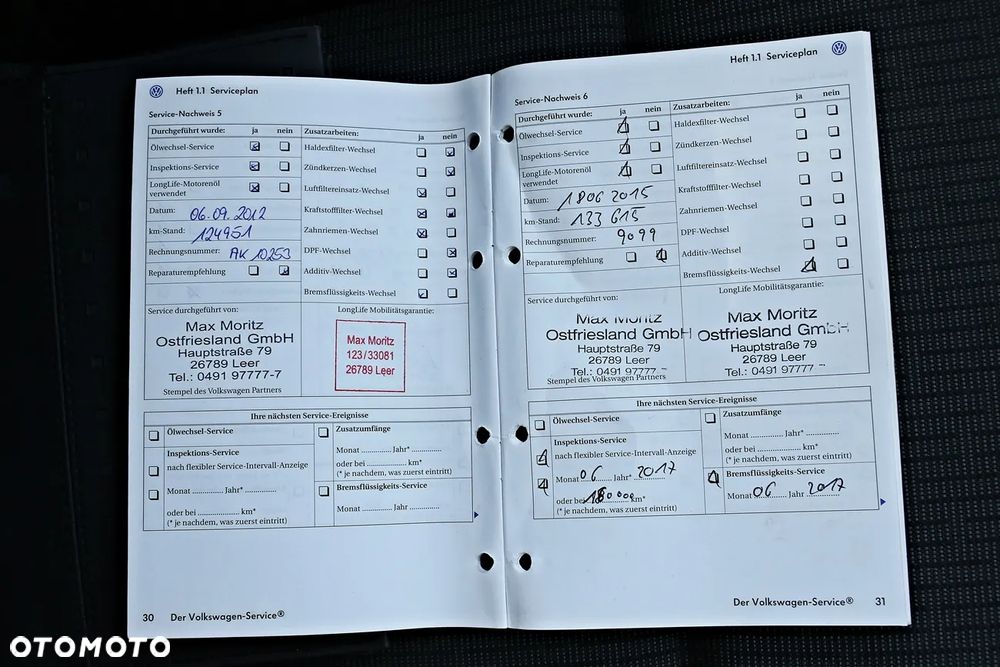 Heft 1.1 Serviceplan
Service-Nachweis 5
Durchgeführt wurde: ja nein Zusatzarbeiten: ja nein
Ölwechsel-Service
Haldexfilter-Wechsel
Inspektions-Service
Zündkerzen-Wechsel
LongLife-Motorenöl
verwendet
Luftfiltereinsatz-Wechsel
Datum: 06.09.2012
Kraftstofffilter-Wechsel
km-Stand: 124951
Zahnriemen-Wechsel
Rechnungsnummer: AK 10253
DPF-Wechsel
Reparaturempfehlung
Additiv-Wechsel
Bremsflüssigkeits-Wechsel
Service durchgeführt von:
LongLife Mobilitätsgarantie:
Max Moritz
Ostfriesland GmbH
Hauptstraße 79
26789 Leer
Tel.: 0491 97777-7
Stempel des Volkswagen Partners
Max Moritz
123/33081
26789 Leer
Ihre nächsten Service-Ereignisse
Ölwechsel-Service
Inspektions-Service
nach flexibler Service-Intervall-Anzeige
Monat .............. Jahr* ..............
oder bei .................. km*
(* je nachdem, was zuerst eintritt)
Zusatzumfänge
Monat .............. Jahr* ..............
oder bei .................. km*
(* je nachdem, was zuerst eintritt)
Bremsflüssigkeits-Service
Monat .............. Jahr ..............
30 Der Volkswagen-Service®
Heft 1.1 Serviceplan
Service-Nachweis 6
Durchgeführt wurde: ja nein Zusatzarbeiten: ja nein
Ölwechsel-Service
Haldexfilter-Wechsel
Inspektions-Service
Zündkerzen-Wechsel
LongLife-Motorenöl
verwendet
Luftfiltereinsatz-Wechsel
Datum: 18 06 2015
Kraftstofffilter-Wechsel
km-Stand: 133 615
Zahnriemen-Wechsel
Rechnungsnummer: 9099
DPF-Wechsel
Reparaturempfehlung
Additiv-Wechsel
Bremsflüssigkeits-Wechsel
Service durchgeführt von:
LongLife Mobilitätsgarantie:
Max Moritz
Ostfriesland GmbH
Hauptstraße 79
26789 Leer
Tel.: 0491 97777
Stempel des Volkswagen Partners
Max Moritz
Ostfriesland GmbH
Hauptstraße 79
26789 Leer
Tel.: 0491 97777
Ihre nächsten Service-Ereignisse
Ölwechsel-Service
Inspektions-Service
nach flexibler Service-Intervall-Anzeige
Monat 06 Jahr* 2017
oder bei 180000 km*
(* je nachdem, was zuerst eintritt)
Zusatzumfänge
Monat .............. Jahr* ..............
oder bei .................. km*
(* je nachdem, was zuerst eintritt)
Bremsflüssigkeits-Service
Monat 06 Jahr 2017
Der Volkswagen-Service® 31
OTOMOTO